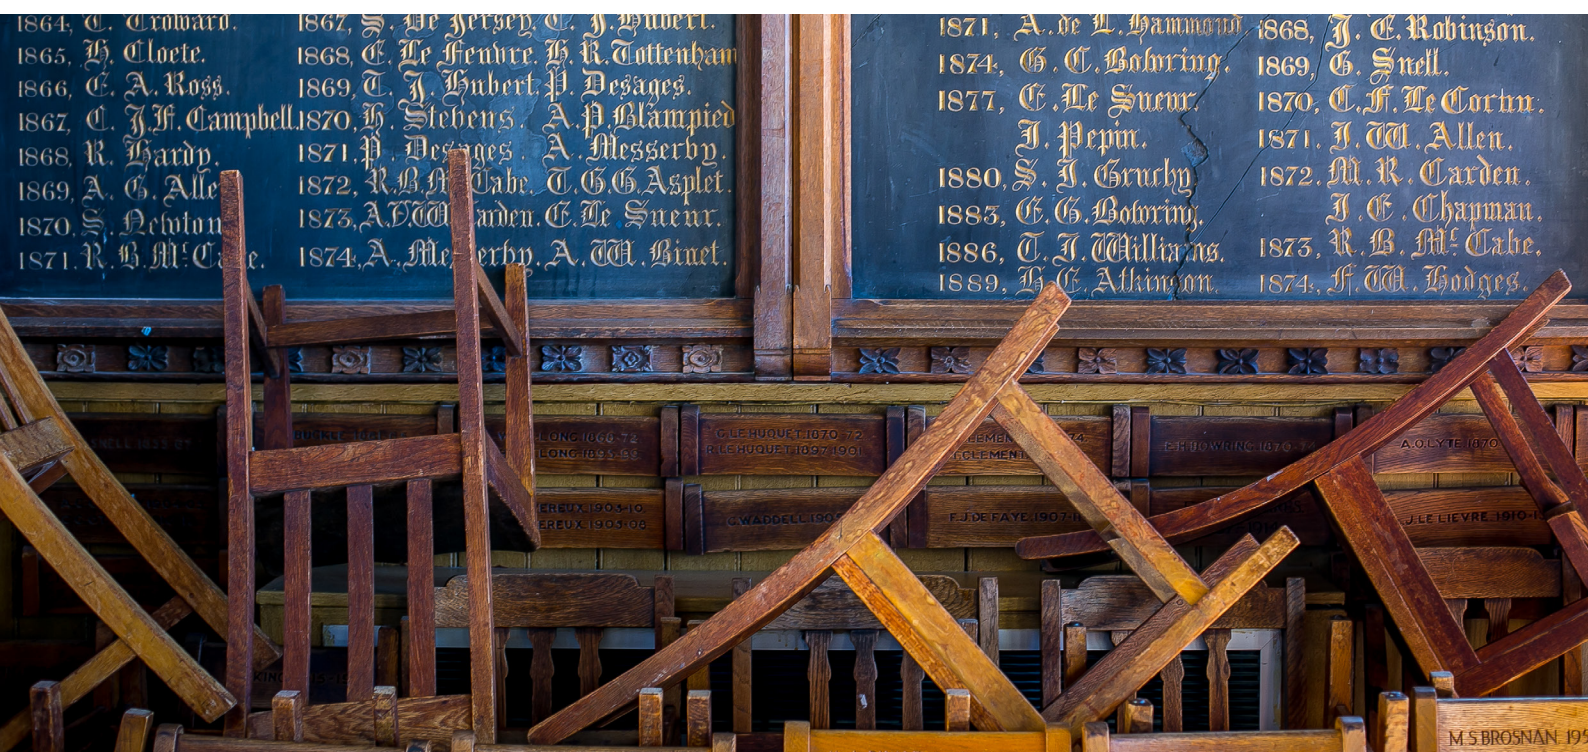 1864, C. Troward.
1865, H. Cloete.
1866, E. A. Ross.
1867, C. J.F. Campbell.
1868, R. Hardy.
1869, A. G. Alle
1870. S. Newton
1871. R. B. Mc. Ca e.
1867, S. De Jersey. C. J. Hubert.
1868, E. Le Feuvre. H. R. Tottenham
1869, T. J. Hubert. P. Desages.
1870, H. Stevens. A. P. Blampied
1871, P. Desages. A. Messervy.
1872, R.B. Mc Cabe. T.G.G. Asplet.
1873, A.F.W. arden. E. Le Sueur.
1874, A. Messervy. A. W. Binet.
1871, A. de L. Hammond
1874, G. C. Bowring.
1877, E. Le Sueur.
J. Pepin.
1880, S. J. Gruchy
1883, E. G. Bowring.
1886, T. J. Williams.
1889, H. E. Atkinson.
1868, J. E. Robinson.
1869, G. Snell.
1870, C. F. Le Cornu.
1871. J. W. Allen.
1872. M. R. Carden.
J. E. Chapman.
1873, R. B. Mc. Cabe.
1874, F. W. Hodges.
LONG 1866-72
LONG 1893-99
G. LE HUQUET. 1870-72
R. LE HUQUET. 1897-1901
CLEMEN 74.
CLEMENT
E.H. BOWRING 1870-74
A.O. LYTE 1870
EREUX 1903-10.
EREUX 1903-08
G. WADDELL 190
F.J. DE FAYE. 1907-11
J. LE LIEVRE. 1910-1
M.S BROSNAN. 195